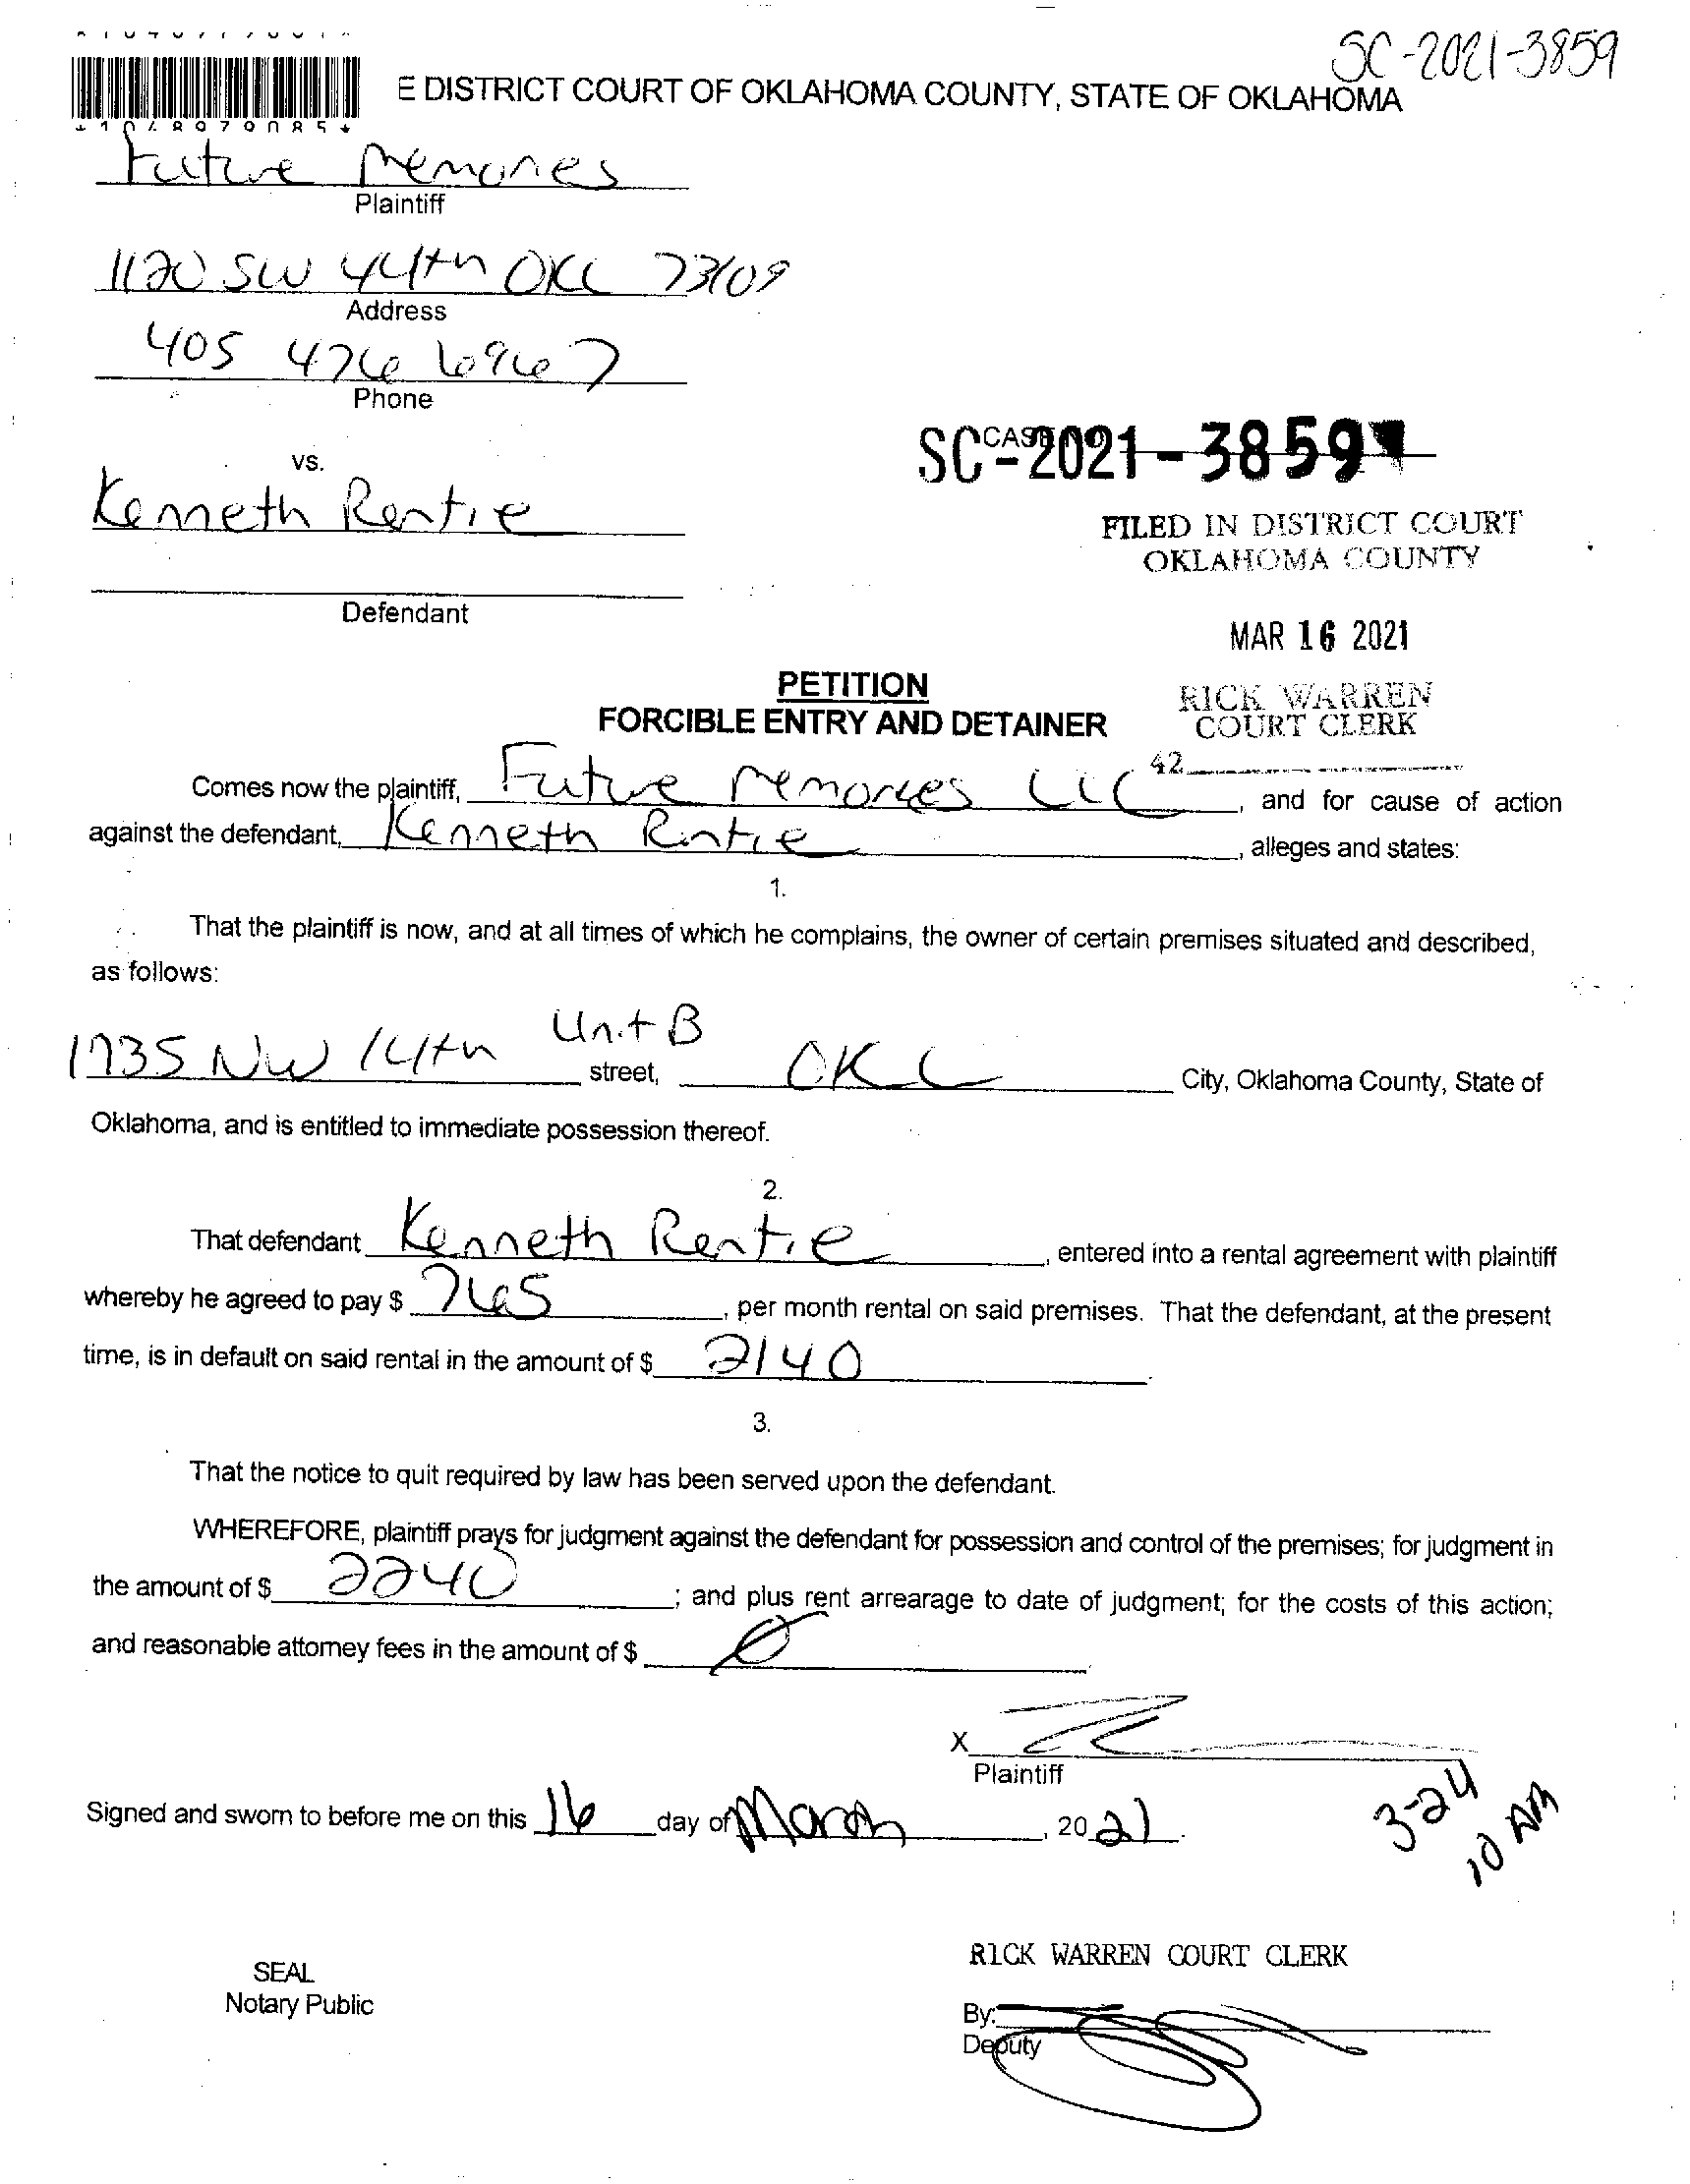 SC-2021-3859
E DISTRICT COURT OF OKLAHOMA COUNTY, STATE OF OKLAHOMA
Future Memories
Plaintiff
1120 SW 44th OKC 73109
Address
405 476 6967
Phone
vs.
SC-2021-3859
Kenneth Rentie
FILED IN DISTRICT COURT
OKLAHOMA COUNTY
Defendant
MAR 16 2021
PETITION
RICK WARREN
FORCIBLE ENTRY AND DETAINER
COURT CLERK
42
Comes now the plaintiff, Future Memories LLC, and for cause of action
against the defendant, Kenneth Rentie, alleges and states:
1.
That the plaintiff is now, and at all times of which he complains, the owner of certain premises situated and described,
as follows:
1735 NW 14th Unit B street, OKC City, Oklahoma County, State of
Oklahoma, and is entitled to immediate possession thereof.
2.
That defendant Kenneth Rentie, entered into a rental agreement with plaintiff
whereby he agreed to pay $ 765, per month rental on said premises. That the defendant, at the present
time, is in default on said rental in the amount of $ 2140.
3.
That the notice to quit required by law has been served upon the defendant.
WHEREFORE, plaintiff prays for judgment against the defendant for possession and control of the premises; for judgment in
the amount of $ 2240; and plus rent arrearage to date of judgment; for the costs of this action;
and reasonable attorney fees in the amount of $ 0.
X
Plaintiff
Signed and sworn to before me on this 16 day of March, 2021.
3-24
10 AM
RICK WARREN COURT CLERK
SEAL
Notary Public
By:
Deputy